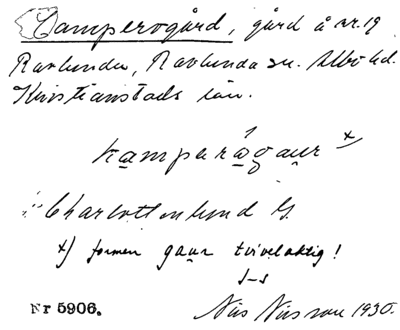 Kamperogård, gård å nr. 19
Ravlunda, Ravlunda sn. Albo hd.
Kristianstads län.
kamperågaur x)
Charlottenlund G.
x) formen gaur tvivelaktig!
J-s
Nr 5906.
Nils Nilsson 1930.